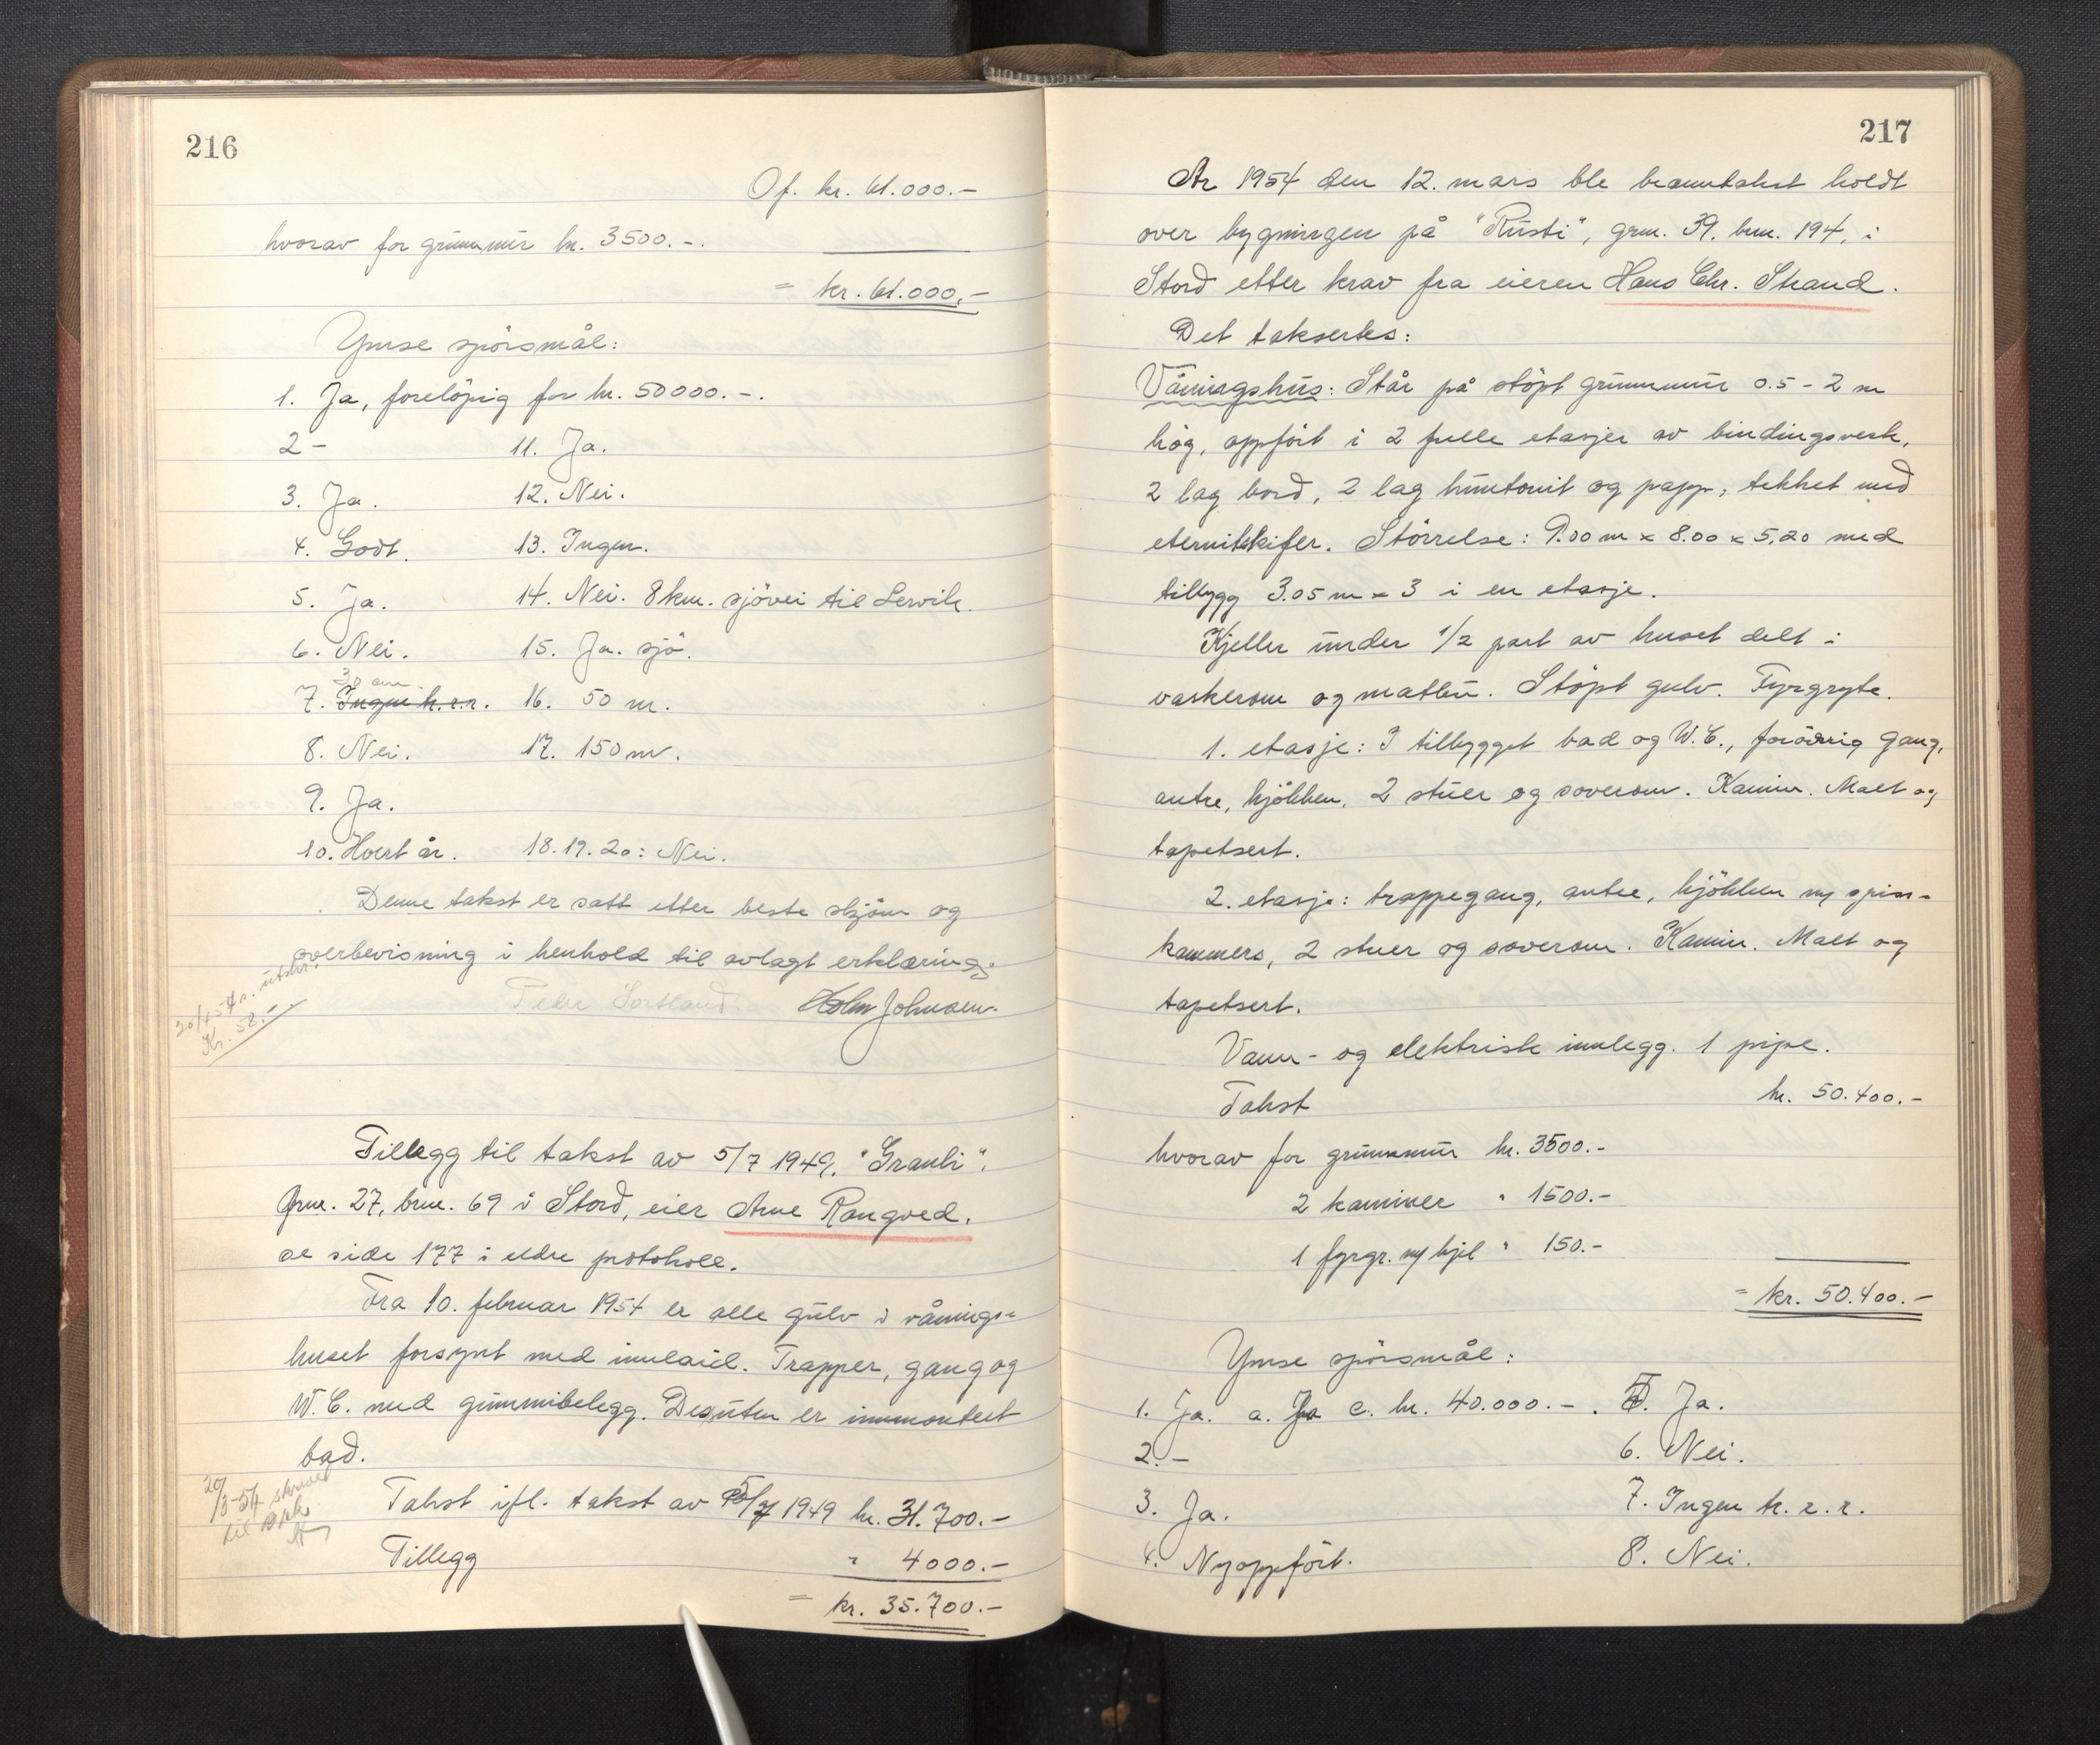 216
Of. kr. 61.000.-
hvorav for grunnmur kr. 3500.-.
= kr. 61.000,-
Ymse spörsmål:
1. Ja, forelöpig for kr. 50000.-.
2 - 11. Ja.
3. Ja. 12. Nei.
4. Godt. 13. Ingen.
5. Ja. 14. Nei. 8 km. sjövei til Lervik.
6. Nei. 15. Ja. sjö.
30 cm
7. Ingen k.r.r. 16. 50 m.
8. Nei. 17. 150 m.
9. Ja.
10. Hvert år. 18.19.20: Nei.
Denne takst er satt etter beste skjönn og
overbevisning i henhold til avlagt erklæring.
20/4-54 utskr.
Kr. 58.-
Peder Sortland. Holm Johnsen.
Tillegg til takst av 5/7 1949, "Granli".
Grnr. 27, brnr. 69 i Stord, eier Arne Rangved.
se side 177 i eldre protokoll.
Fra 10. februar 1954 er alle gulv i vånings-
huset forsynt med innlaid. Trapper, gang og
W.C. med gummibelegg. Desuten er innmontert
bad.
20/3-54 skrevet
til
Takst ifl. takst av 5/7 1949 kr. 31.700.-
Tillegg " 4000.-
= kr. 35.700.-
217
År 1954 den 12. mars ble branntakst holdt
over bygningen på "Rusti", grnr. 39. brnr. 194, i
Stord etter krav fra eieren Hans Chr. Strand.
Det taksertes:
Våningshus: Står på stöpt grunnmur 0.5 - 2 m
hög, oppfört i 2 fulle etasjer av bindingsverk,
2 lag bord, 2 lag huntonit og papp, tekket med
eternitskifer. Störrelse: 9.00 m x 8.00 x 5,20 med
tilbygg 3.05 m x 3 i en etasje.
Kjeller under 1/2 part av huset delt i
vaskerom og matbu. Stöpt gulv. Fyrgryte.
1. etasje: I tilbygget bad og W.C., forövrig gang,
antre, kjökken, 2 stuer og soverom. Kamin. Malt og
tapetsert.
2. etasje: trappegang, antre, kjökken m/ spis-
kammers, 2 stuer og soverom. Kamin. Malt og
tapetsert.
Vann- og elektrisk innlegg. 1 pipe.
Takst kr. 50.400.-
hvorav for grunnmur kr. 3500.-
2 kaminer " 1500.-
1 fyrgr. m/ kjel " 150.-
= kr. 50.400.-
Ymse spörsmål:
1. Ja. a. Ja c. kr. 40.000.-. 5. Ja.
2. - 6. Nei.
3. Ja. 7. Ingen k.r.r.
4. Nyoppfört. 8. Nei.